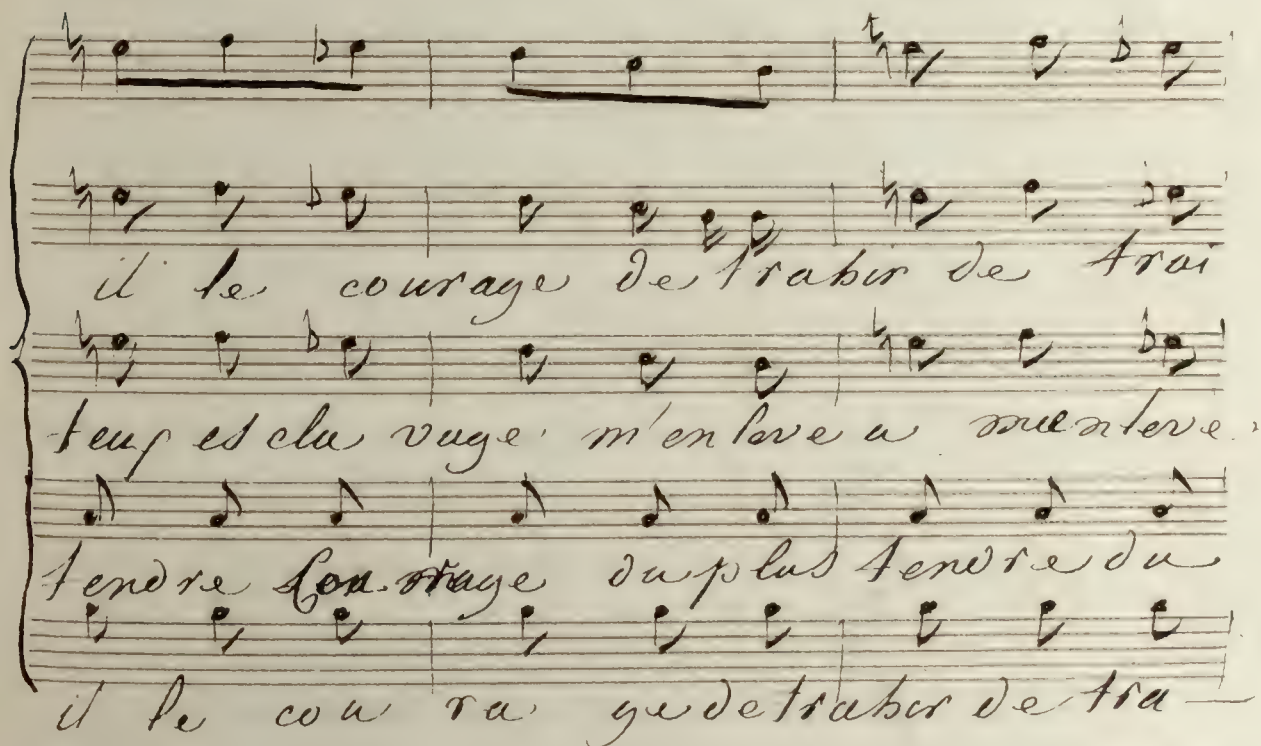 il le courage de trahir de trai
esclavage m'enleve a m'enleve
tendre Courage du plus tendre du
il le cou ra ge de trahir de tra—